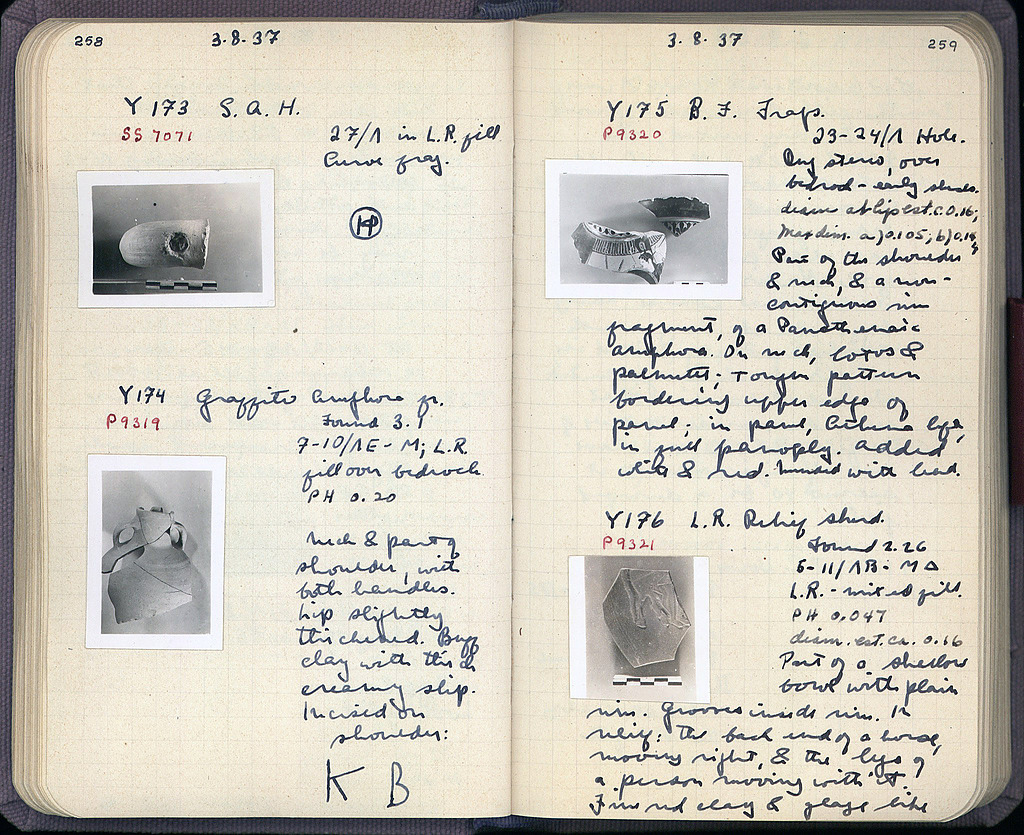 258
3·8·37
Y173 S.A.H.
SS 7071
27/Λ in L.R. fill
Curve frag.
HP
Y174 Graffito amphora fr.
P9319
Found 3.1
7-10/ΛE-M; L.R.
fill over bedrock
PH 0.20
Neck & part of
shoulder, with
both handles.
Lip slightly
thickened. Buff
clay with thick
creamy slip.
Incised on
shoulder:
K B
3·8·37
259
Y175 B.F. Frags.
P9320
23-24/Λ Hole.
Dug stereo, over
bedrock - early sherds.
diam at lip est. c. 0.16;
Max dim. a) 0.105; b) 0.14
Part of the shoulder
& neck, & a non-
contiguous rim
fragment, of a Panathenaic
amphora. On neck, lotus &
palmette; tongue pattern
bordering upper edge of
panel; in panel, Athena left,
in full panoply. Added
white & red. Mended with lead.
Y176 L.R. Relief sherd.
P9321
Found 2.26
5-11/ΛB-MΔ
L.R. - mixed fill.
PH 0.047
diam. est. ca. 0.16
Part of a shallow
bowl with plain
rim. Grooves inside rim. In
relief: the back end of a horse,
moving right, & the legs of
a person moving with it.
Fine red clay & glaze like